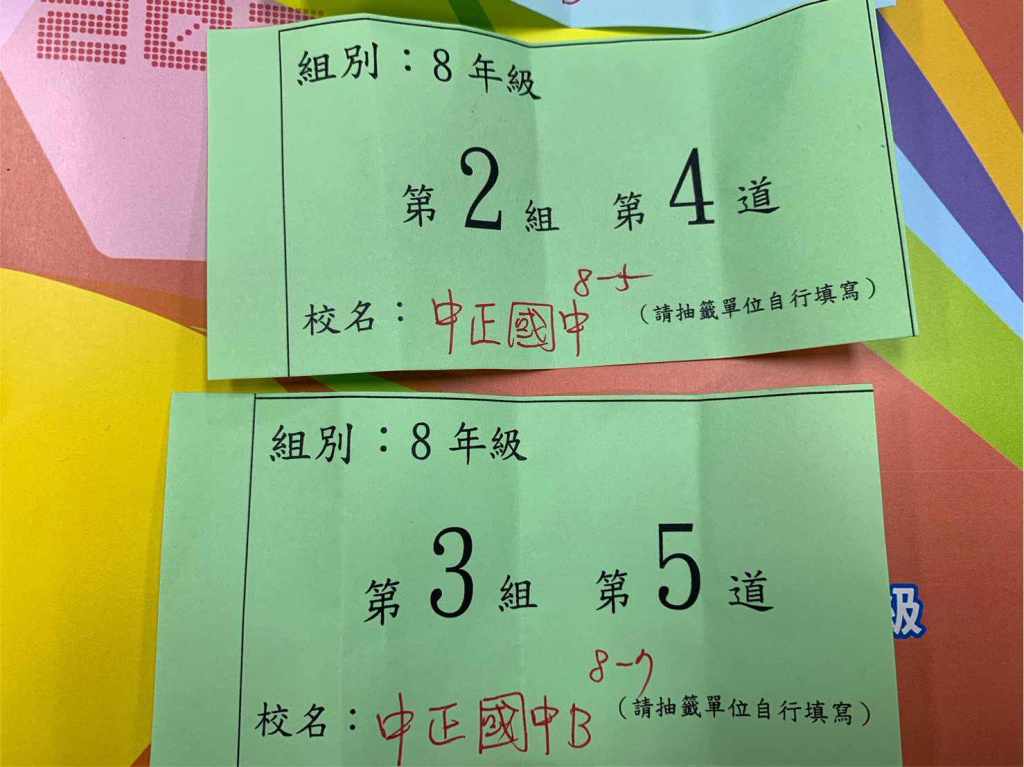 組別：8年級
第2組 第4道
8-5
校名：中正國中 (請抽籤單位自行填寫)
組別：8年級
第3組 第5道
8-7
校名：中正國中B (請抽籤單位自行填寫)
級